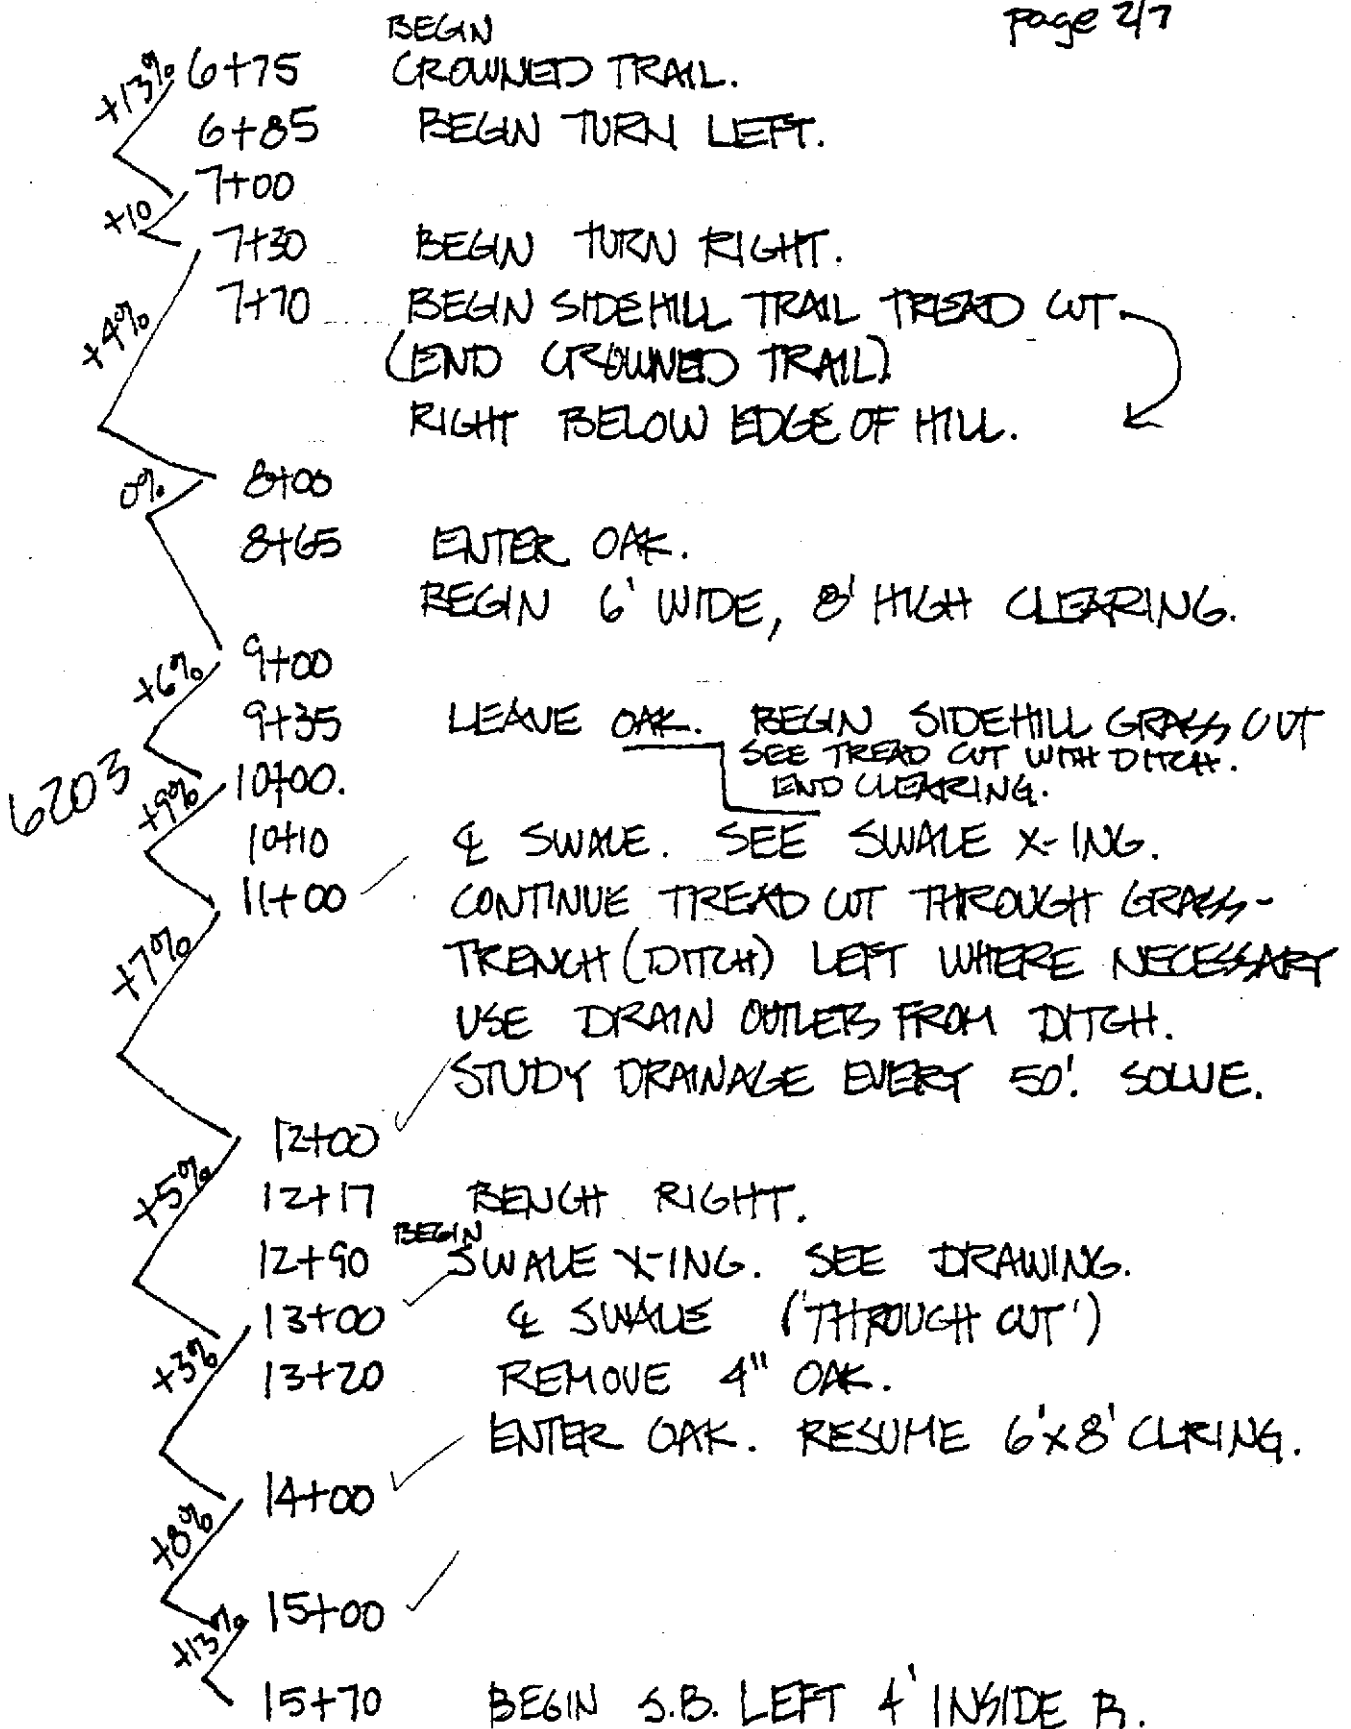 page 2/7
BEGIN
+13% 6+75 CROWNED TRAIL.
6+85 BEGIN TURN LEFT.
7+00
+10
7+30 BEGIN TURN RIGHT.
7+70 BEGIN SIDEHILL TRAIL TREAD CUT
+4%
(END CROWNED TRAIL)
RIGHT BELOW EDGE OF HILL.
0% 8+00
8+65 ENTER OAK.
BEGIN 6' WIDE, 8' HIGH CLEARING.
+6% 9+00
9+35 LEAVE OAK. BEGIN SIDEHILL GRASS CUT
SEE TREAD CUT WITH DITCH.
END CLEARING.
6203
+9% 10+00.
10+10 ℄ SWALE. SEE SWALE X-ING.
11+00 CONTINUE TREAD CUT THROUGH GRASS-
+7% TRENCH (DITCH) LEFT WHERE NECESSARY
USE DRAIN OUTLETS FROM DITCH.
STUDY DRAINAGE EVERY 50'. SOLVE.
12+00
+5% 12+17 BENCH RIGHT.
BEGIN
12+90 SWALE X-ING. SEE DRAWING.
13+00 ℄ SWALE ('THROUGH CUT')
+3% 13+20 REMOVE 4" OAK.
ENTER OAK. RESUME 6'X8' CLRING.
14+00
+8%
15+00
+13%
15+70 BEGIN S.B. LEFT 4' INSIDE R.